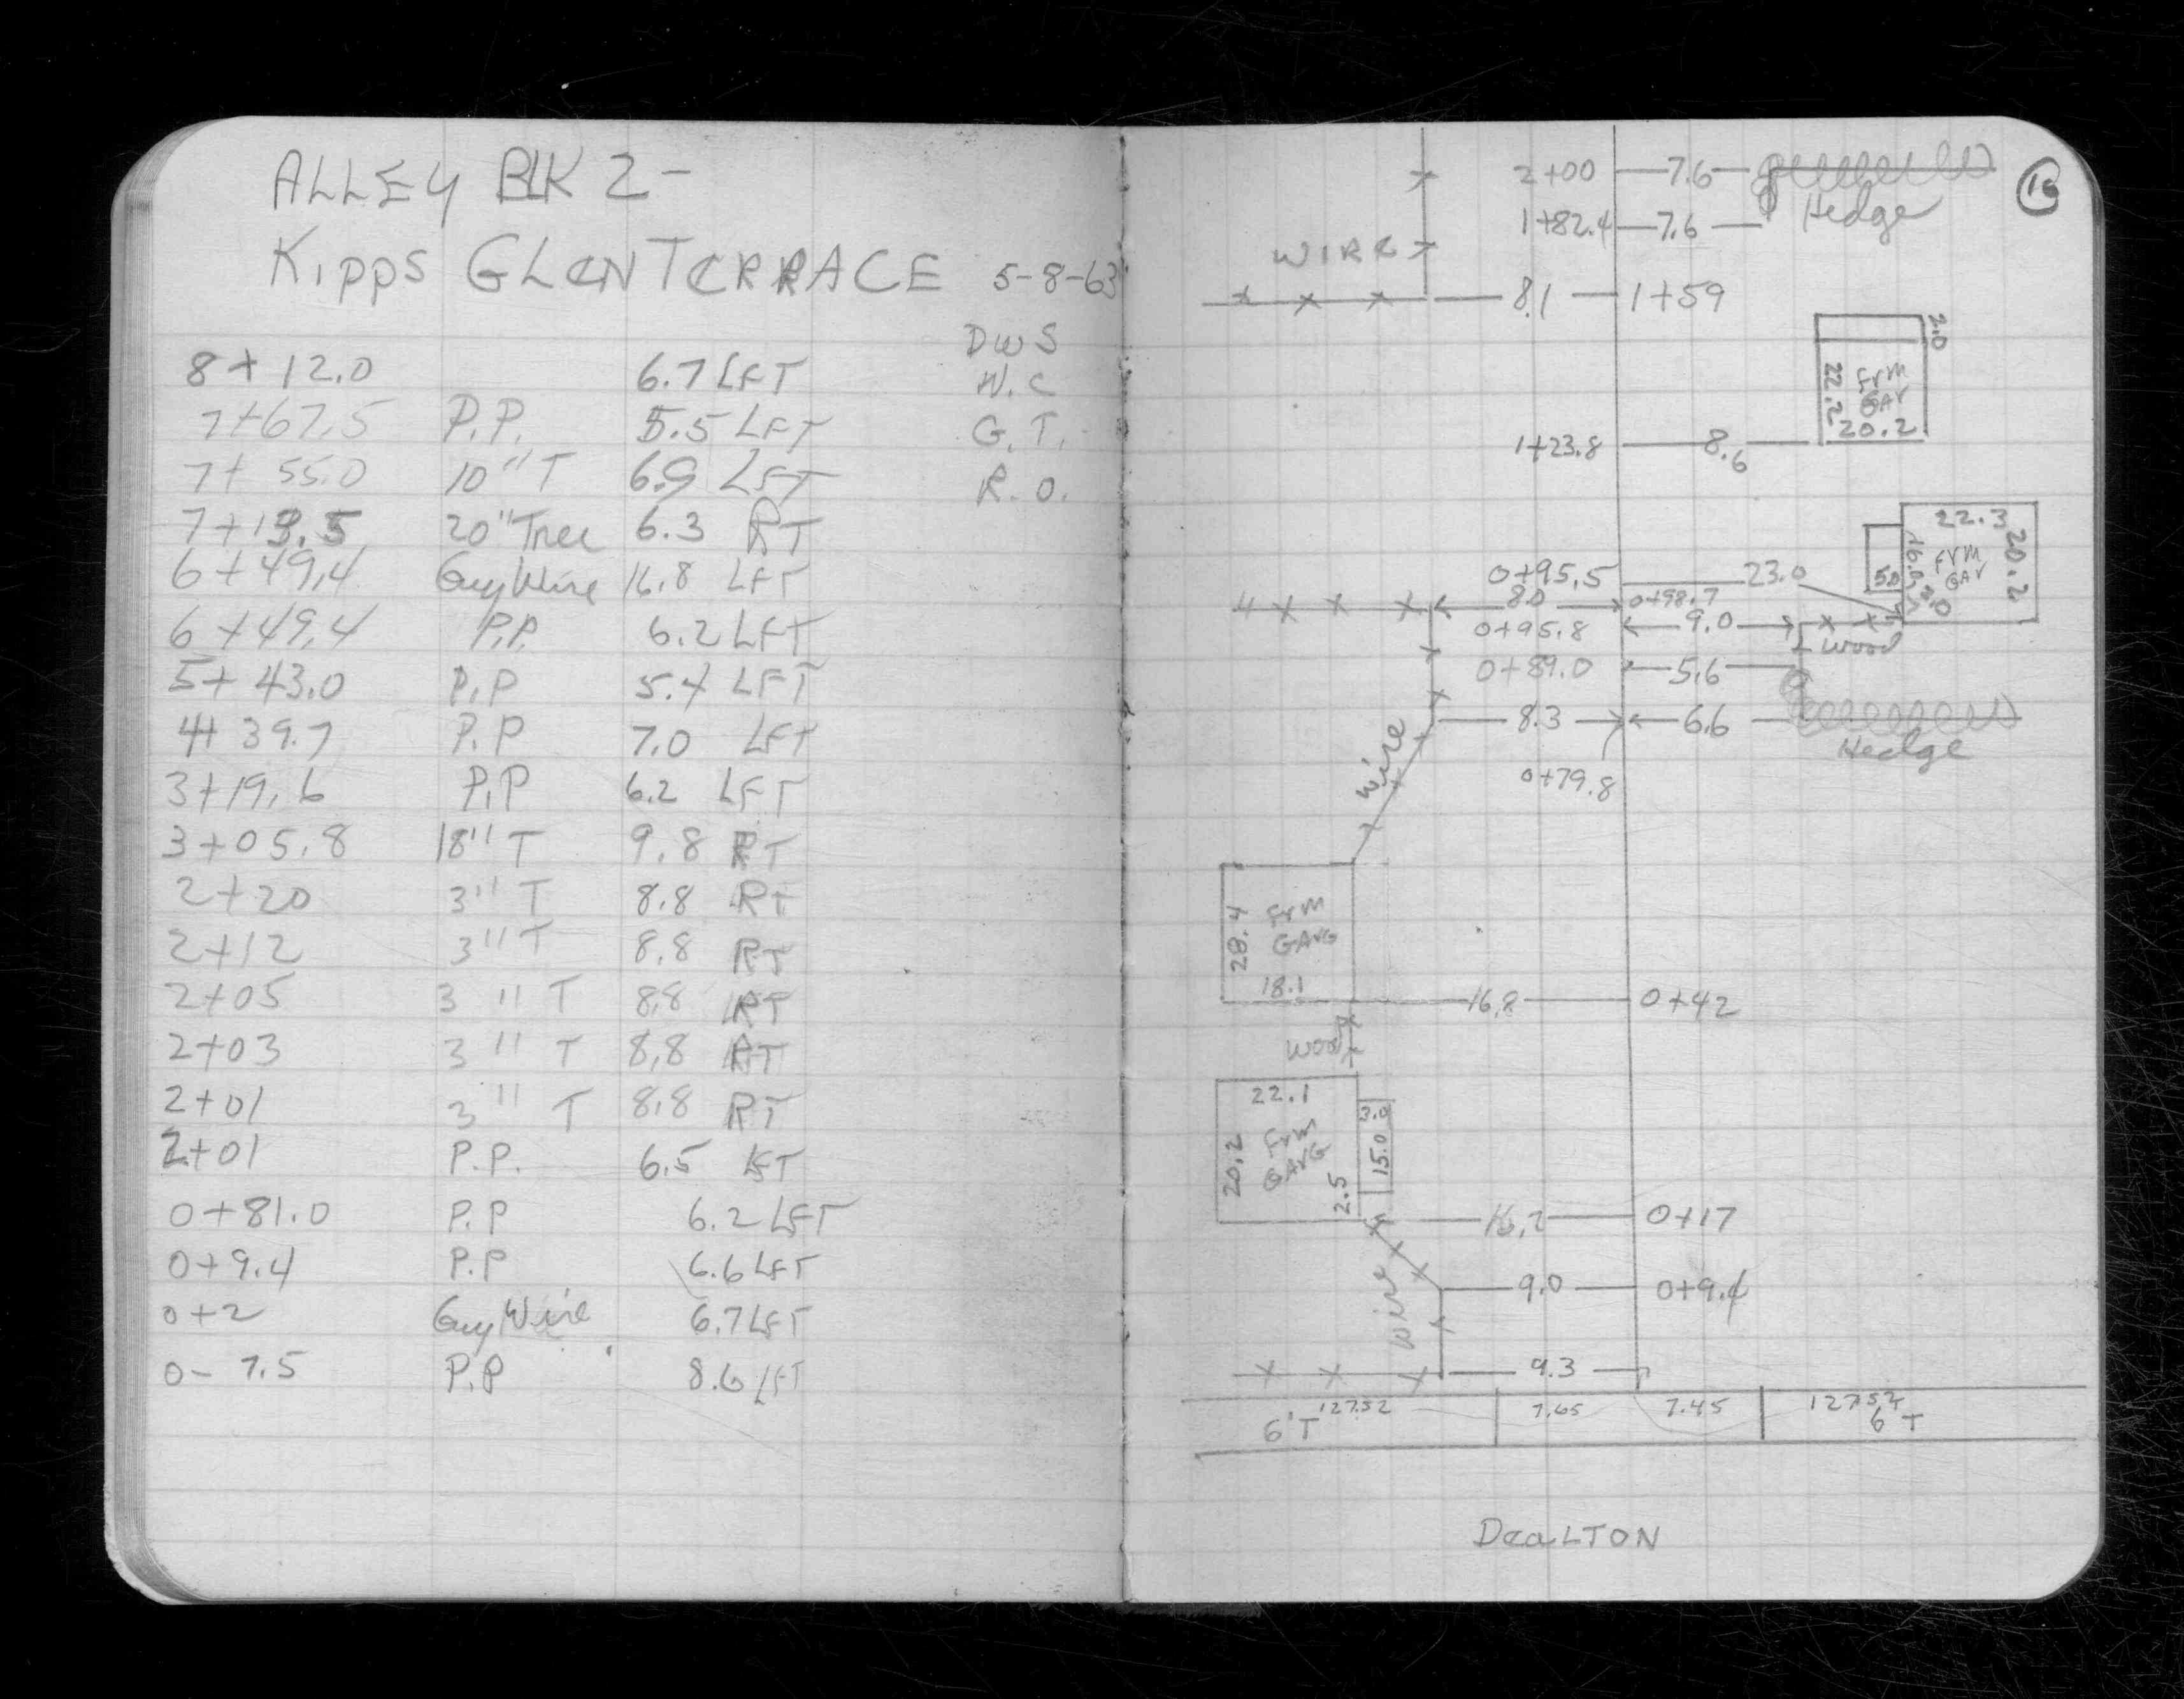 ALLEY BLK 2-
Kipps GLENTERRACE 5-8-63
DWS
8+12.0 6.7 LFT W.C
7+67.5 P.P. 5.5 LFT G.T.
7+55.0 10"T 6.9 LFT R.O.
7+13.5 20"Tree 6.3 RT
6+49.4 Guy Wire 16.8 LFT
6+49.4 P.P. 6.2 LFT
5+43.0 P.P 5.4 LFT
4+39.7 P.P 7.0 LFT
3+19.6 P.P 6.2 LFT
3+05.8 18"T 9.8 RT
2+20 3"T 8.8 RT
2+12 3"T 8.8 RT
2+05 3"T 8.8 RT
2+03 3"T 8.8 RT
2+01 3"T 8.8 RT
2+01 P.P. 6.5 LFT
0+81.0 P.P 6.2 LFT
0+9.4 P.P 6.6 LFT
0+2 Guy Wire 6.7 LFT
0-7.5 P.P 8.6 LFT
2+00 7.6
1+82.4 7.6 Hedge
WIRE
8.1 1+59
2.0
22.2 Frm
GAr
20.2
1+23.8 8.6
22.3
20.2
16.0 Frm
GAr
5.0
3.0
0+95.5 23.0
8.0 0+98.7
0+95.8 9.0
Wood
0+89.0 5.6
8.3 6.6
Hedge
Wire
0+79.8
28.4 Frm
GArG
18.1
16.8 0+42
Wood
22.1
3.0
20.2 Frm
GArG
15.0
2.5
16.2 0+17
9.0 0+9.4
Wire
9.3
6'T 127.52 7.65 7.45 127.52
6'T
DeaLTON